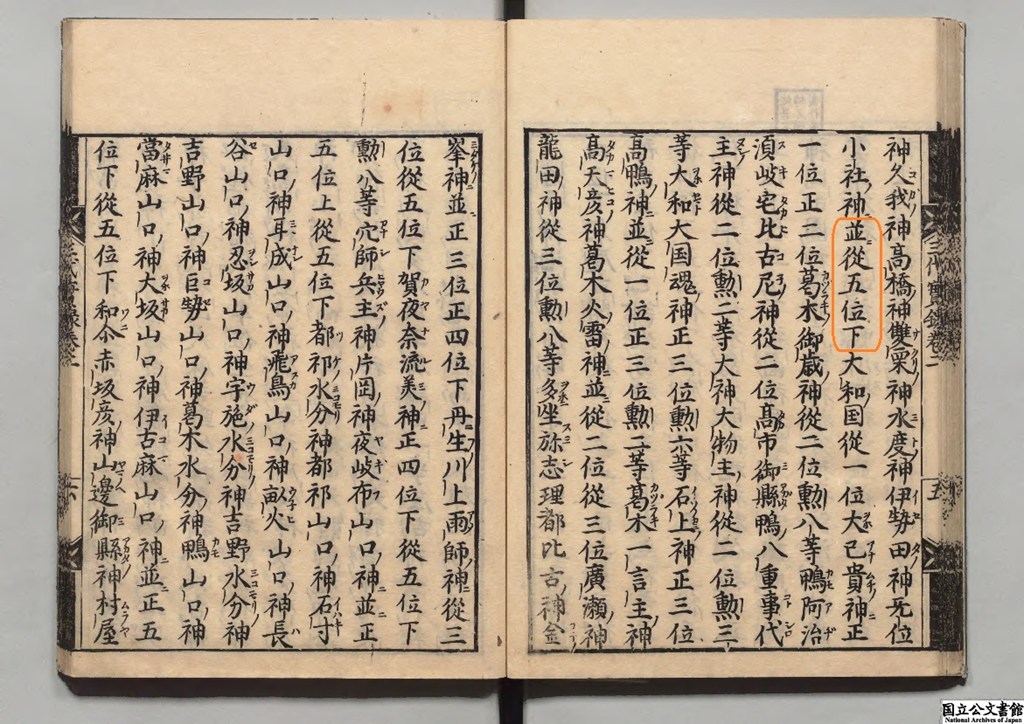 神久我神高橋神雙栗神水度神伊勢田神无位
小社神並從五位下大和国從一位大己貴神正
一位正二位葛木御歳神從二位勲八等鴨阿治
湏岐宅比古尼神從二位髙市御縣鴨八重事代
主神從二位勲二等大神大物主神從二位勲三
等大和大国魂神正三位勲六等石上神正三位
髙鴨神並從一位正三位勲二等葛木一言主神
髙天彦神葛木火雷神並從二位從三位廣瀬神
龍田神從三位勲八等多坐弥志理都比古神金
峯神並正三位正四位下丹生川上雨師神從三
位從五位下賀夜奈流美神正四位下從五位下
勲八等穴師兵主神片岡神夜岐布山口神並正
五位上從五位下都祁水分神都祁山口神石寸
山口神耳成山口神飛鳥山口神畝火山口神長
谷山口神忍坂山口神宇施水分神吉野水分神
吉野山口神巨勢山口神葛木水分神鴨山口神
當麻山口神大坂山口神伊古麻山口神並正五
位下從五位下和尒赤坂彦神山邊御縣神村屋
五
国立公文書館
National Archives of Japan